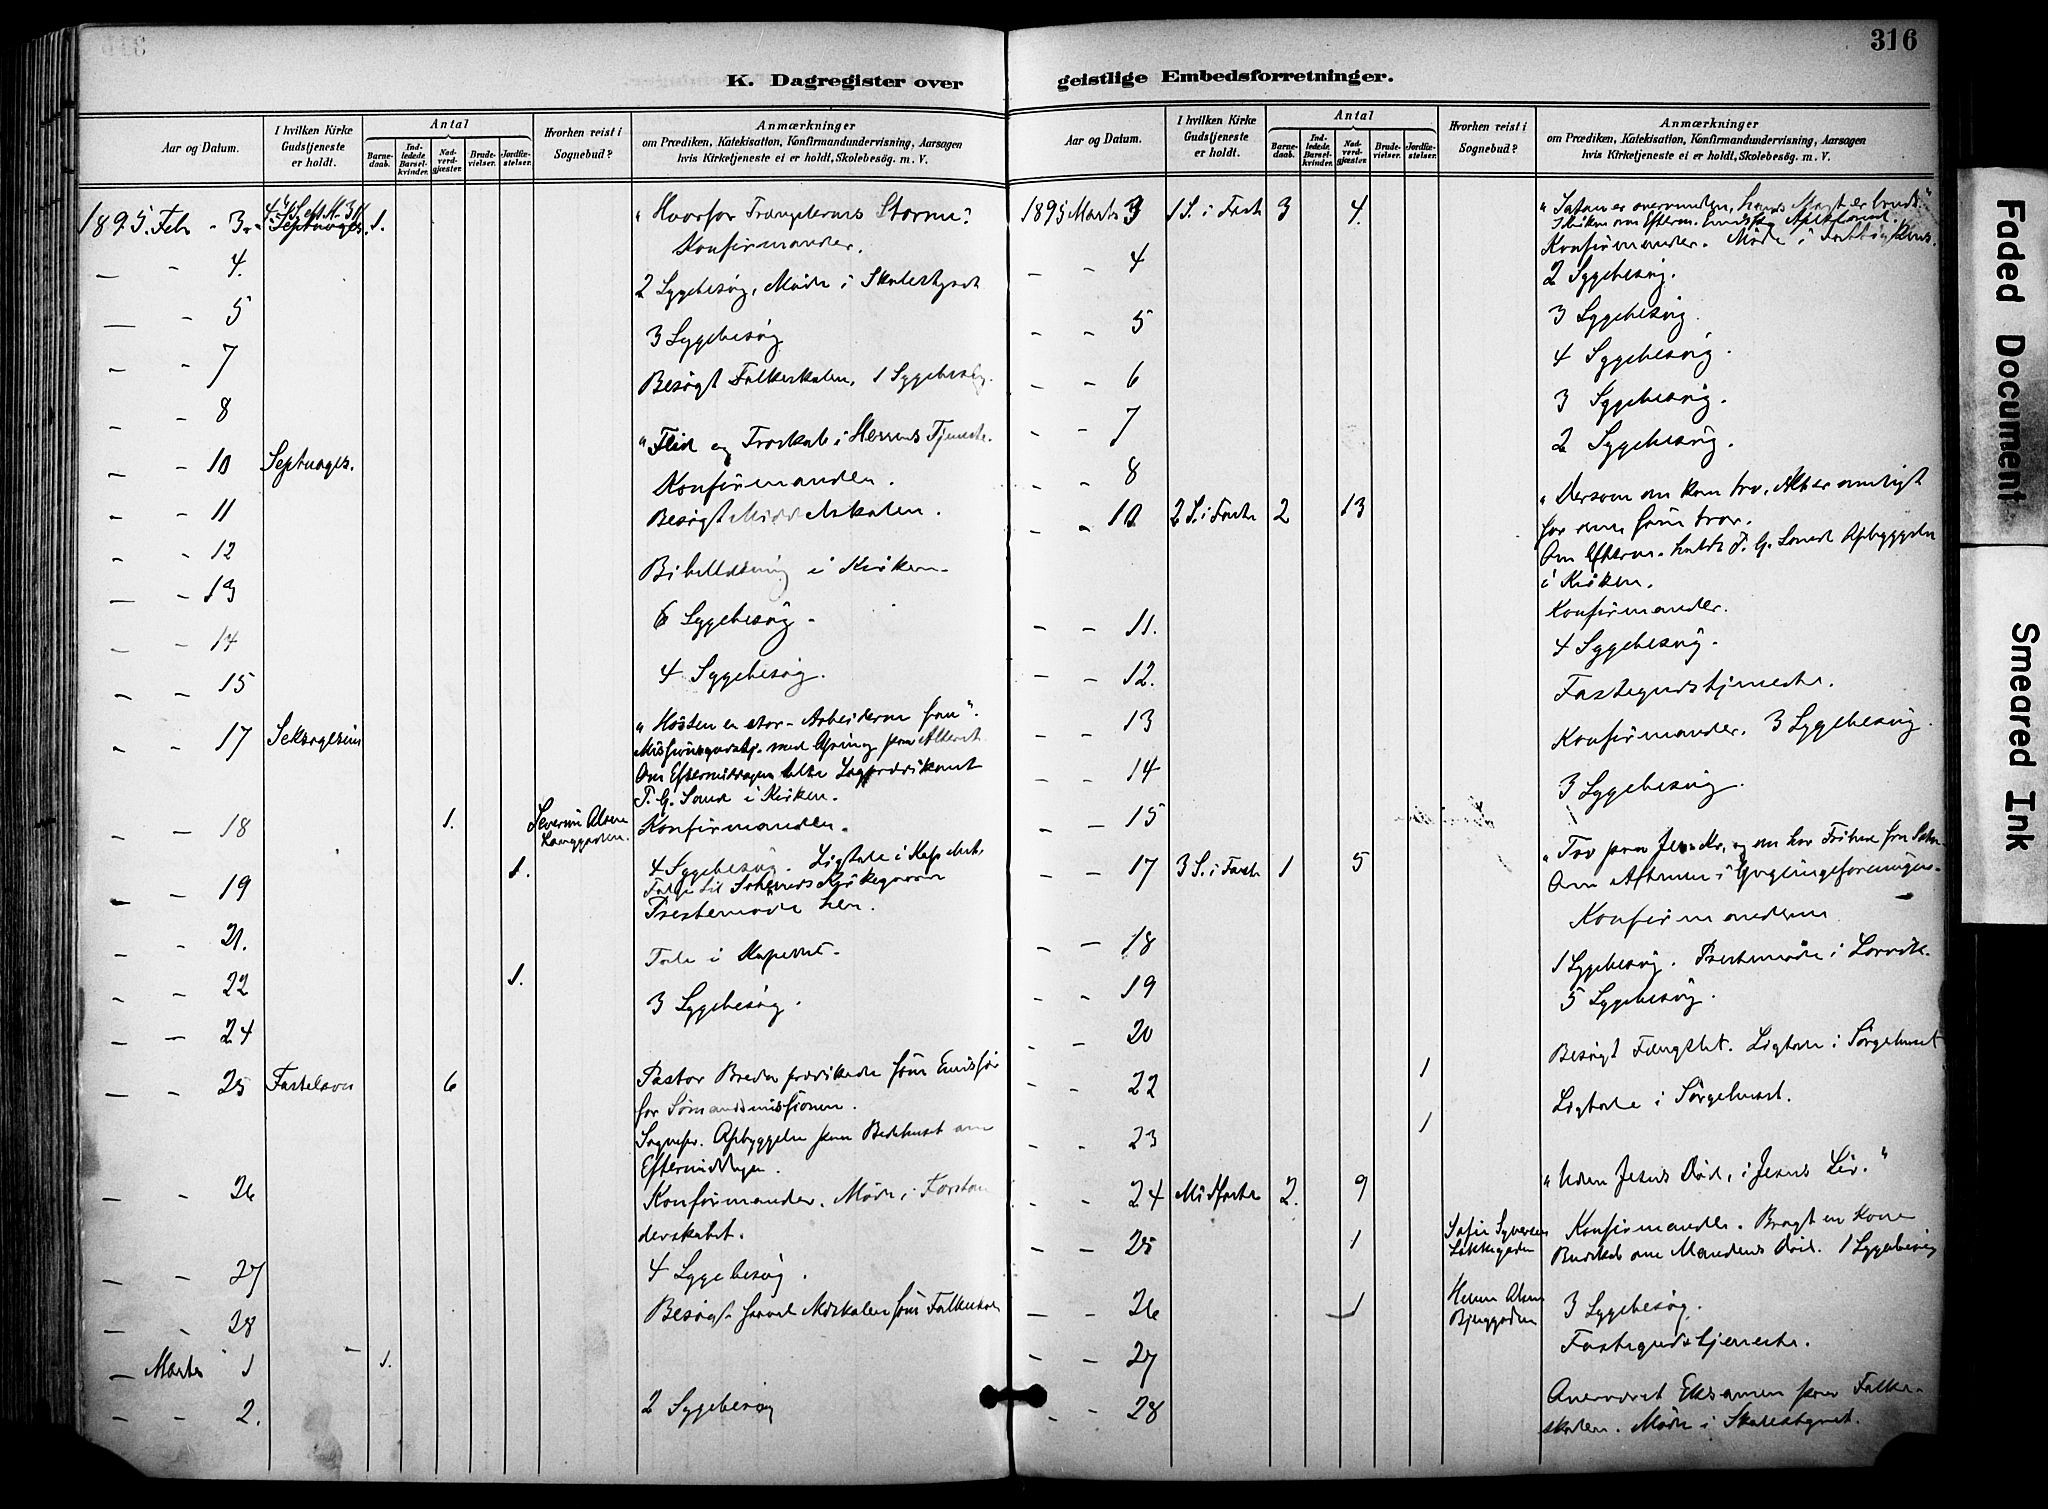 316
K. Dagregister over geistlige Embedsforretninger.
Aar og Datum.
I hvilken Kirke Gudstjeneste er holdt.
Antal
Barnedaab.
Indledede Barselkvinder.
Nadverdgjæster.
Brudevielser.
Jordfæstelser.
Hvorhen reist i Sognebud?
Anmærkninger
om Prædiken, Katekisation, Konfirmandundervisning, Aarsagen
hvis Kirketjeneste ei er holdt, Skolebesög. m. V.
1895. Febr - 3 1. "Hvorfor Trængslernes Storme?
Konfirmander.
— - 4. 2 Sygebesøg, Møde i Skolestyret
— - 5 3 Sygebesøg
— - 7 Besøgt Folkeskolen, 1 Sygebesøg.
— - 8
— - 10 Septuages. "Flid og Troskab i Herrens Tjeneste.
Konfirmander.
— - 11 Besøgt Middelskolen.
— - 12 Bibellæsning i Kirken.
— - 13 6 Sygebesøg -
— - 14
— - 15 4 Sygebesøg.
— - 17 "Høsten er stor - Arbeiderne faa".
Om Eftermiddagen
T. G. Sand i Kirken.
— - 18 1. Severin Olsen
Langgaden. Konfirmander.
1. 4 Sygebesøg. Ligtale i Kapellet,
— - 19
Prestemøde her.
— - 21. Tale i Kapellet.
— - 22 1. 3 Sygebesøg.
— - 24
— - 25 Fastelavn 6 Pastor Breder prædikede som Emissær
for Sømandsmissionen.
Sognepr. Opbyggelse paa Bedehuset om
Eftermiddagen.
— - 26 Konfirmander. Møde i Forstan
derskabet.
— - 27 4 Sygebesøg.
— - 28 Besøgt Folkeskolen
— Marts 1 1.
— - 2. 2 Sygebesøg
Aar og Datum.
I hvilken Kirke Gudstjeneste er holdt.
Antal
Barnedaab.
Indledede Barselkvinder.
Nadverdgjæster.
Brudevielser.
Jordfæstelser.
Hvorhen reist i Sognebud?
Anmærkninger
om Prædiken, Katekisation, Konfirmandundervisning, Aarsagen
hvis Kirketjeneste ei er holdt, Skolebesög. m. V.
1895 Marts 3 1 S. i Faste 3 4. "Satan er overvunden, hans Magt er brudt."
Konfirmander. Møde i
— - 4 2 Sygebesøg.
— - 5 3 Sygebesøg.
— - 6 4 Sygebesøg.
— - 7 3 Sygebesøg.
— - 8 2 Sygebesøg.
- 10 2 S. i Faste 2 13 "Dersom du kan tro, Alt er muligt
for den, som tror.
Om Efterm. holdt T. G. Sand Opbyggelse
i Kirken.
— - 11. Konfirmander.
4 Sygebesøg.
— - 12. Fastegudstjeneste.
— - 13 Konfirmander. 3 Sygebesøg.
— - 14 3 Sygebesøg.
— - 15
— - 17 3 S. i Faste 1 5 "Tro paa Jesus
Om Aftenen i Ynglingeforeningen.
Konfirmanderne
— - 18 1 Sygebesøg. Prestemøde i Larvik.
— - 19 5 Sygebesøg.
— - 20 Besøgt Fængslet. Ligtale i Sørgehuset
- - 22 1 Ligtale i Sørgehuset.
- - 23 1
- - 24 Midfaste 2. 9 "Uden Jesus Død, i Jesus Liv."
- - 25 1 Sofie Syversen
Konfirmander. Bragt en Kone
Budskab om Mandens Død. 1 Sygebesøg
— - 26 1 3 Sygebesøg.
— - 27 Fastegudstjeneste.
- - 28 Overværet Eksamen paa Folke-
skolen. Møde i Skolestyret.
Faded Document
Smeared Ink